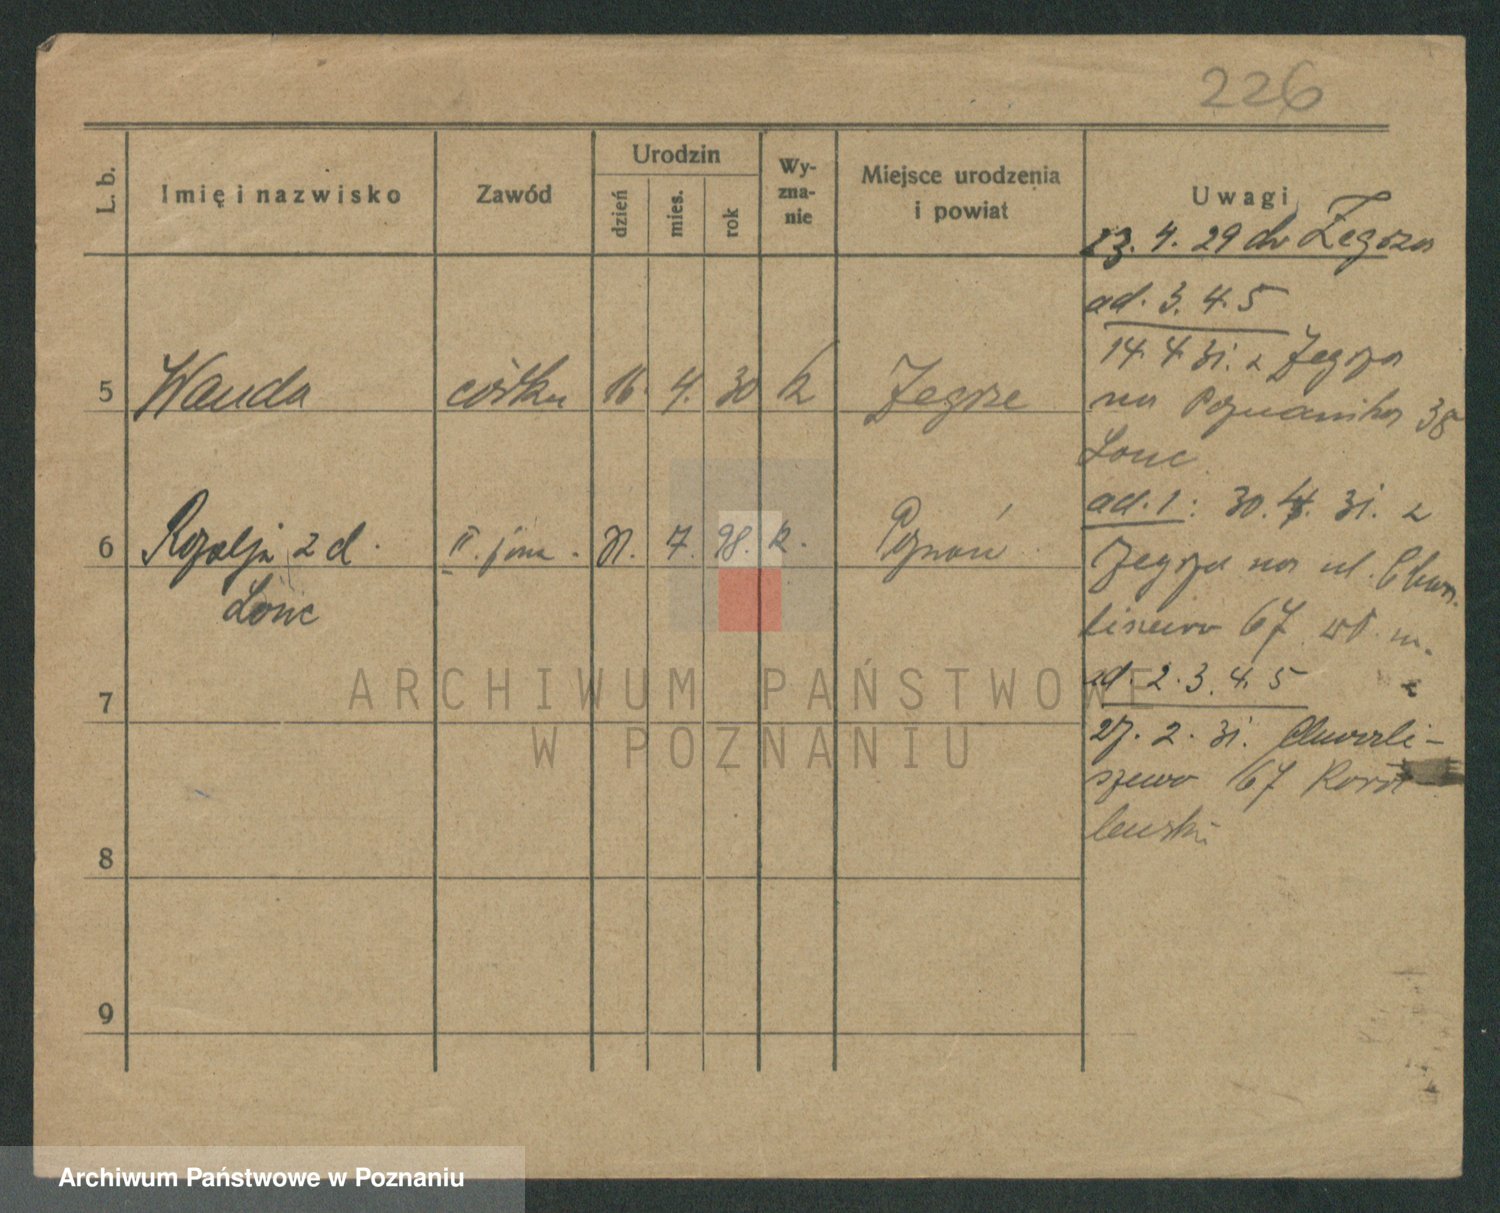 226
L. b.
Imię i nazwisko
Zawód
Urodzin
dzień
mies.
rok
Wy-
zna-
nie
Miejsce urodzenia
i powiat
Uwagi
23. 4. 29 do Zegrza
ad. 3. 4. 5
14. 4. 31. z Zegrza
na Poznańska 38
Lonc
5 Wanda córka 16. 4. 30 k Zegrze
ad. 1: 30. 4. 31. z
6 Rozalja z d. II. żona. 7. 98. k. Poznań
Lonc
Zegrza na ul. Chwa
liszewo 67
ad. 2. 3. 4. 5
7
27. 2. 31. Chwali-
szewo 67
8
9
ARCHIWUM PAŃSTWOWE
W POZNANIU
Archiwum Państwowe w Poznaniu